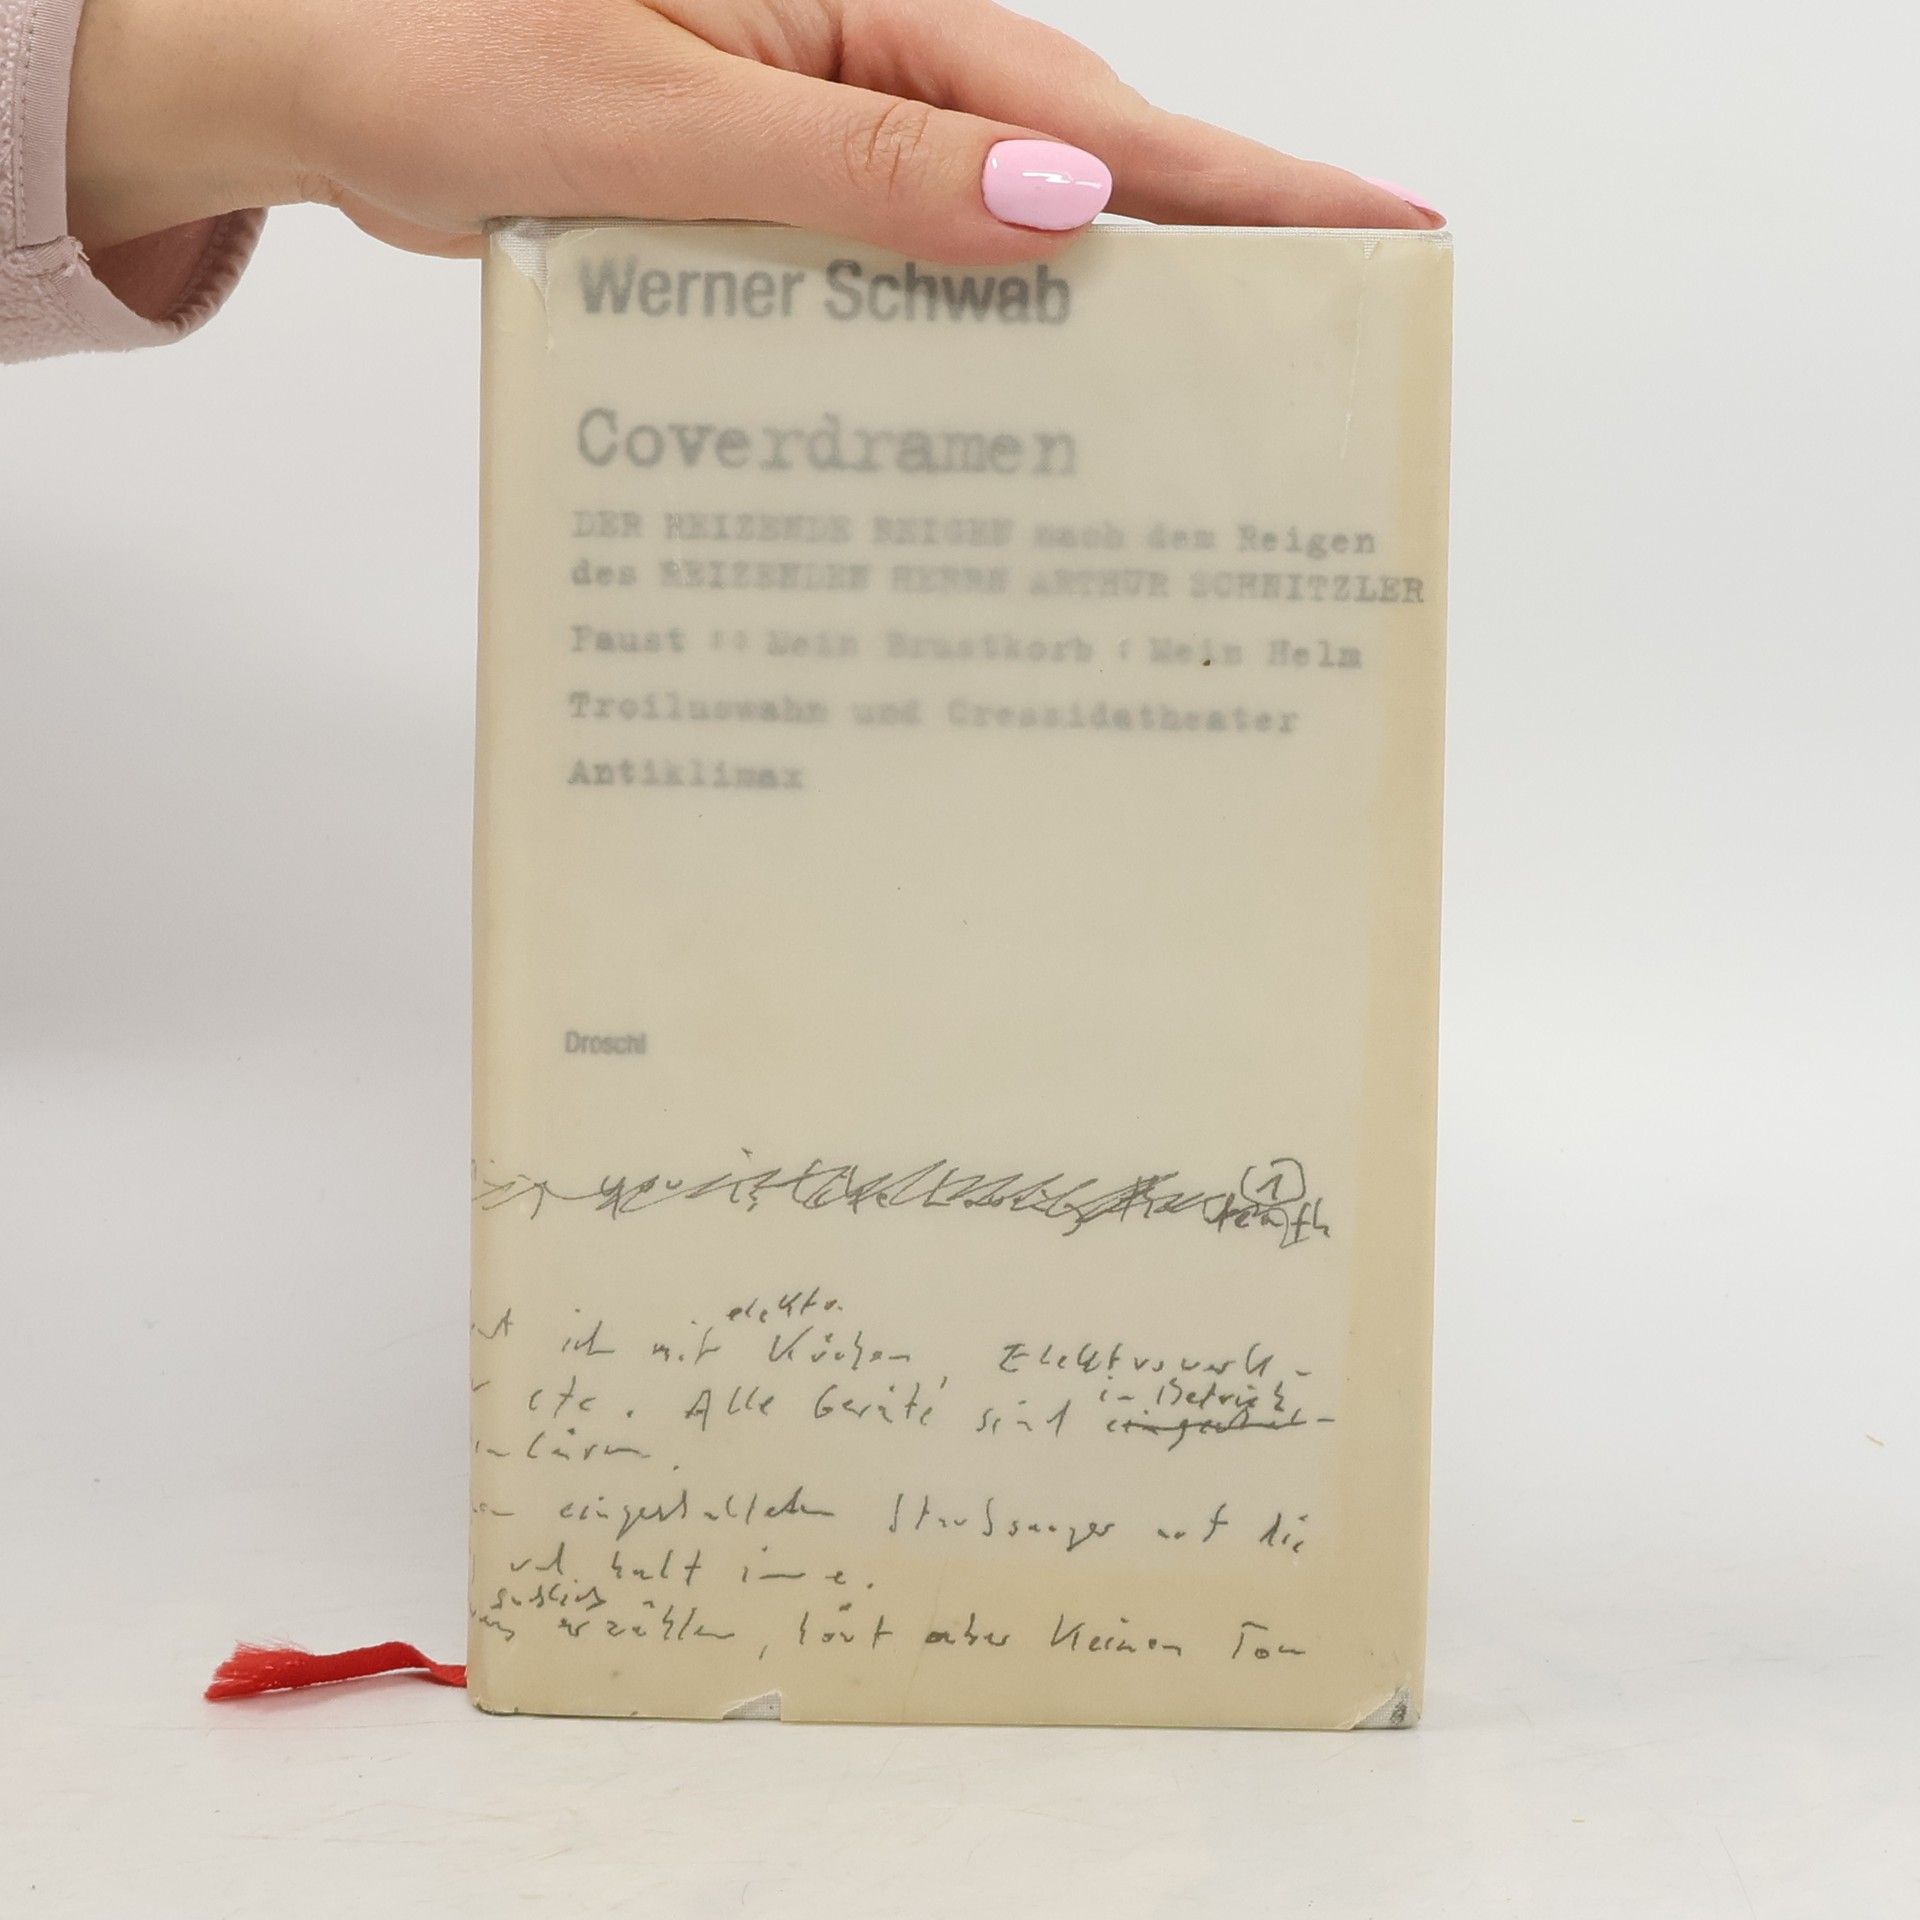 Werner Schwab
Coverdramen
DER REIZENDE REIGEN nach dem Reigen
des REIZENDEN HERRN ARTHUR SCHNITZLER
Faust :: Mein Brustkorb : Mein Helm
Troiluswahn und Cressidatheater
Antiklimax
Droschl
(1)
elektr.
ich mit Küchen, Elektrowerk-
in Betrieb
etc. Alle Geräte sind
Lärm.
eingeschalteten Staubsauger auf die
und halt inne.
erzählen, hört aber keinen Ton